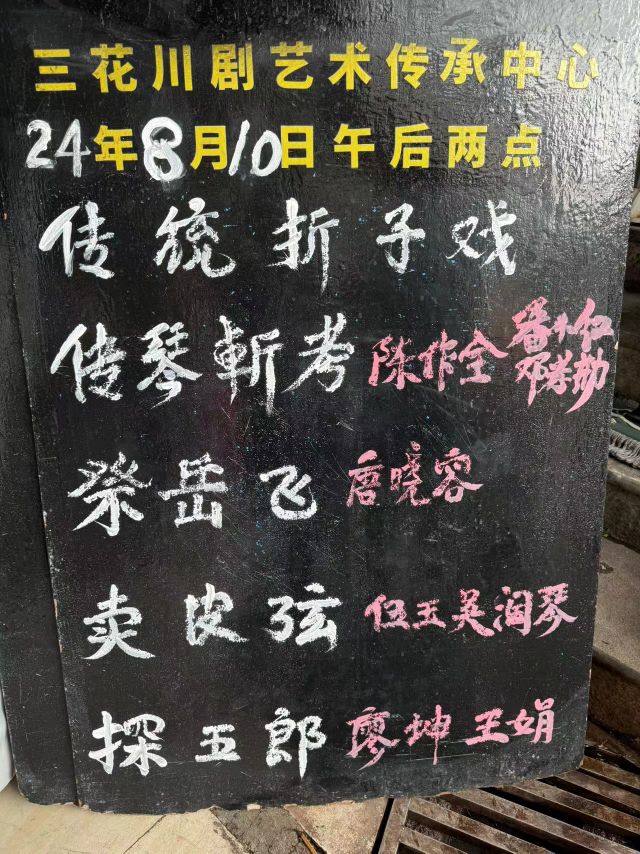 三花川剧艺术传承中心
24年8月10日午后两点
传统折子戏
传琴斬考 陈作全
祭岳飞 唐晓容
卖皮弦 吴润琴
探五郎 廖坤 王娟